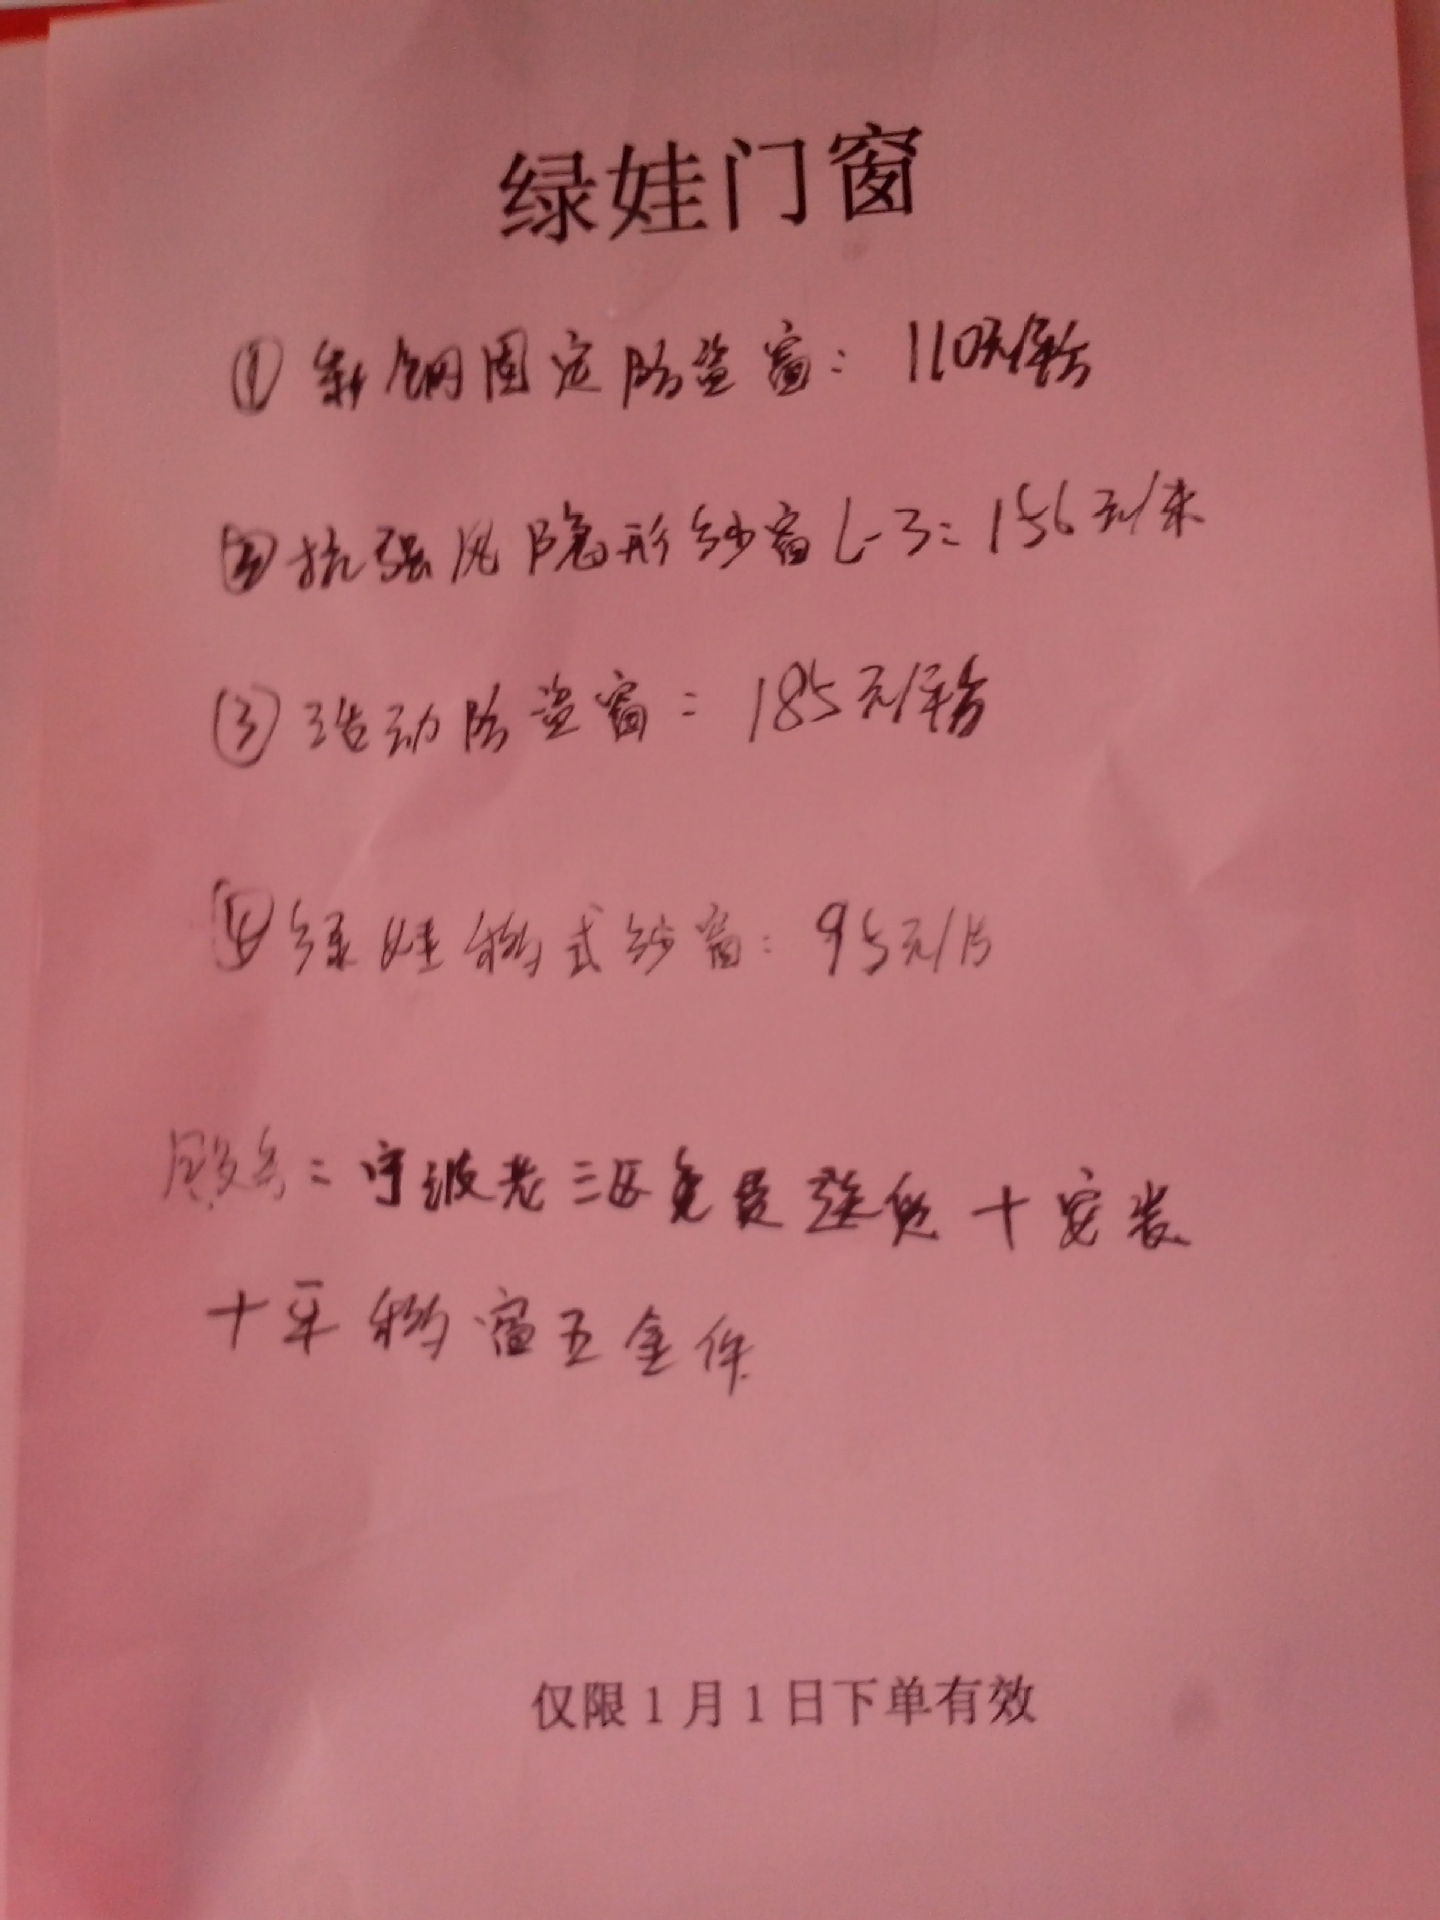 绿娃门窗
① 钢固定防盗窗: 110元/平方
② 抗强风隐形纱窗L-3: 156元/米
③ 活动防盗窗: 185元/平方
④ 绿娃移式纱窗: 95元/片
宁波老三区免费送货+安装
+平移窗五金件
仅限1月1日下单有效